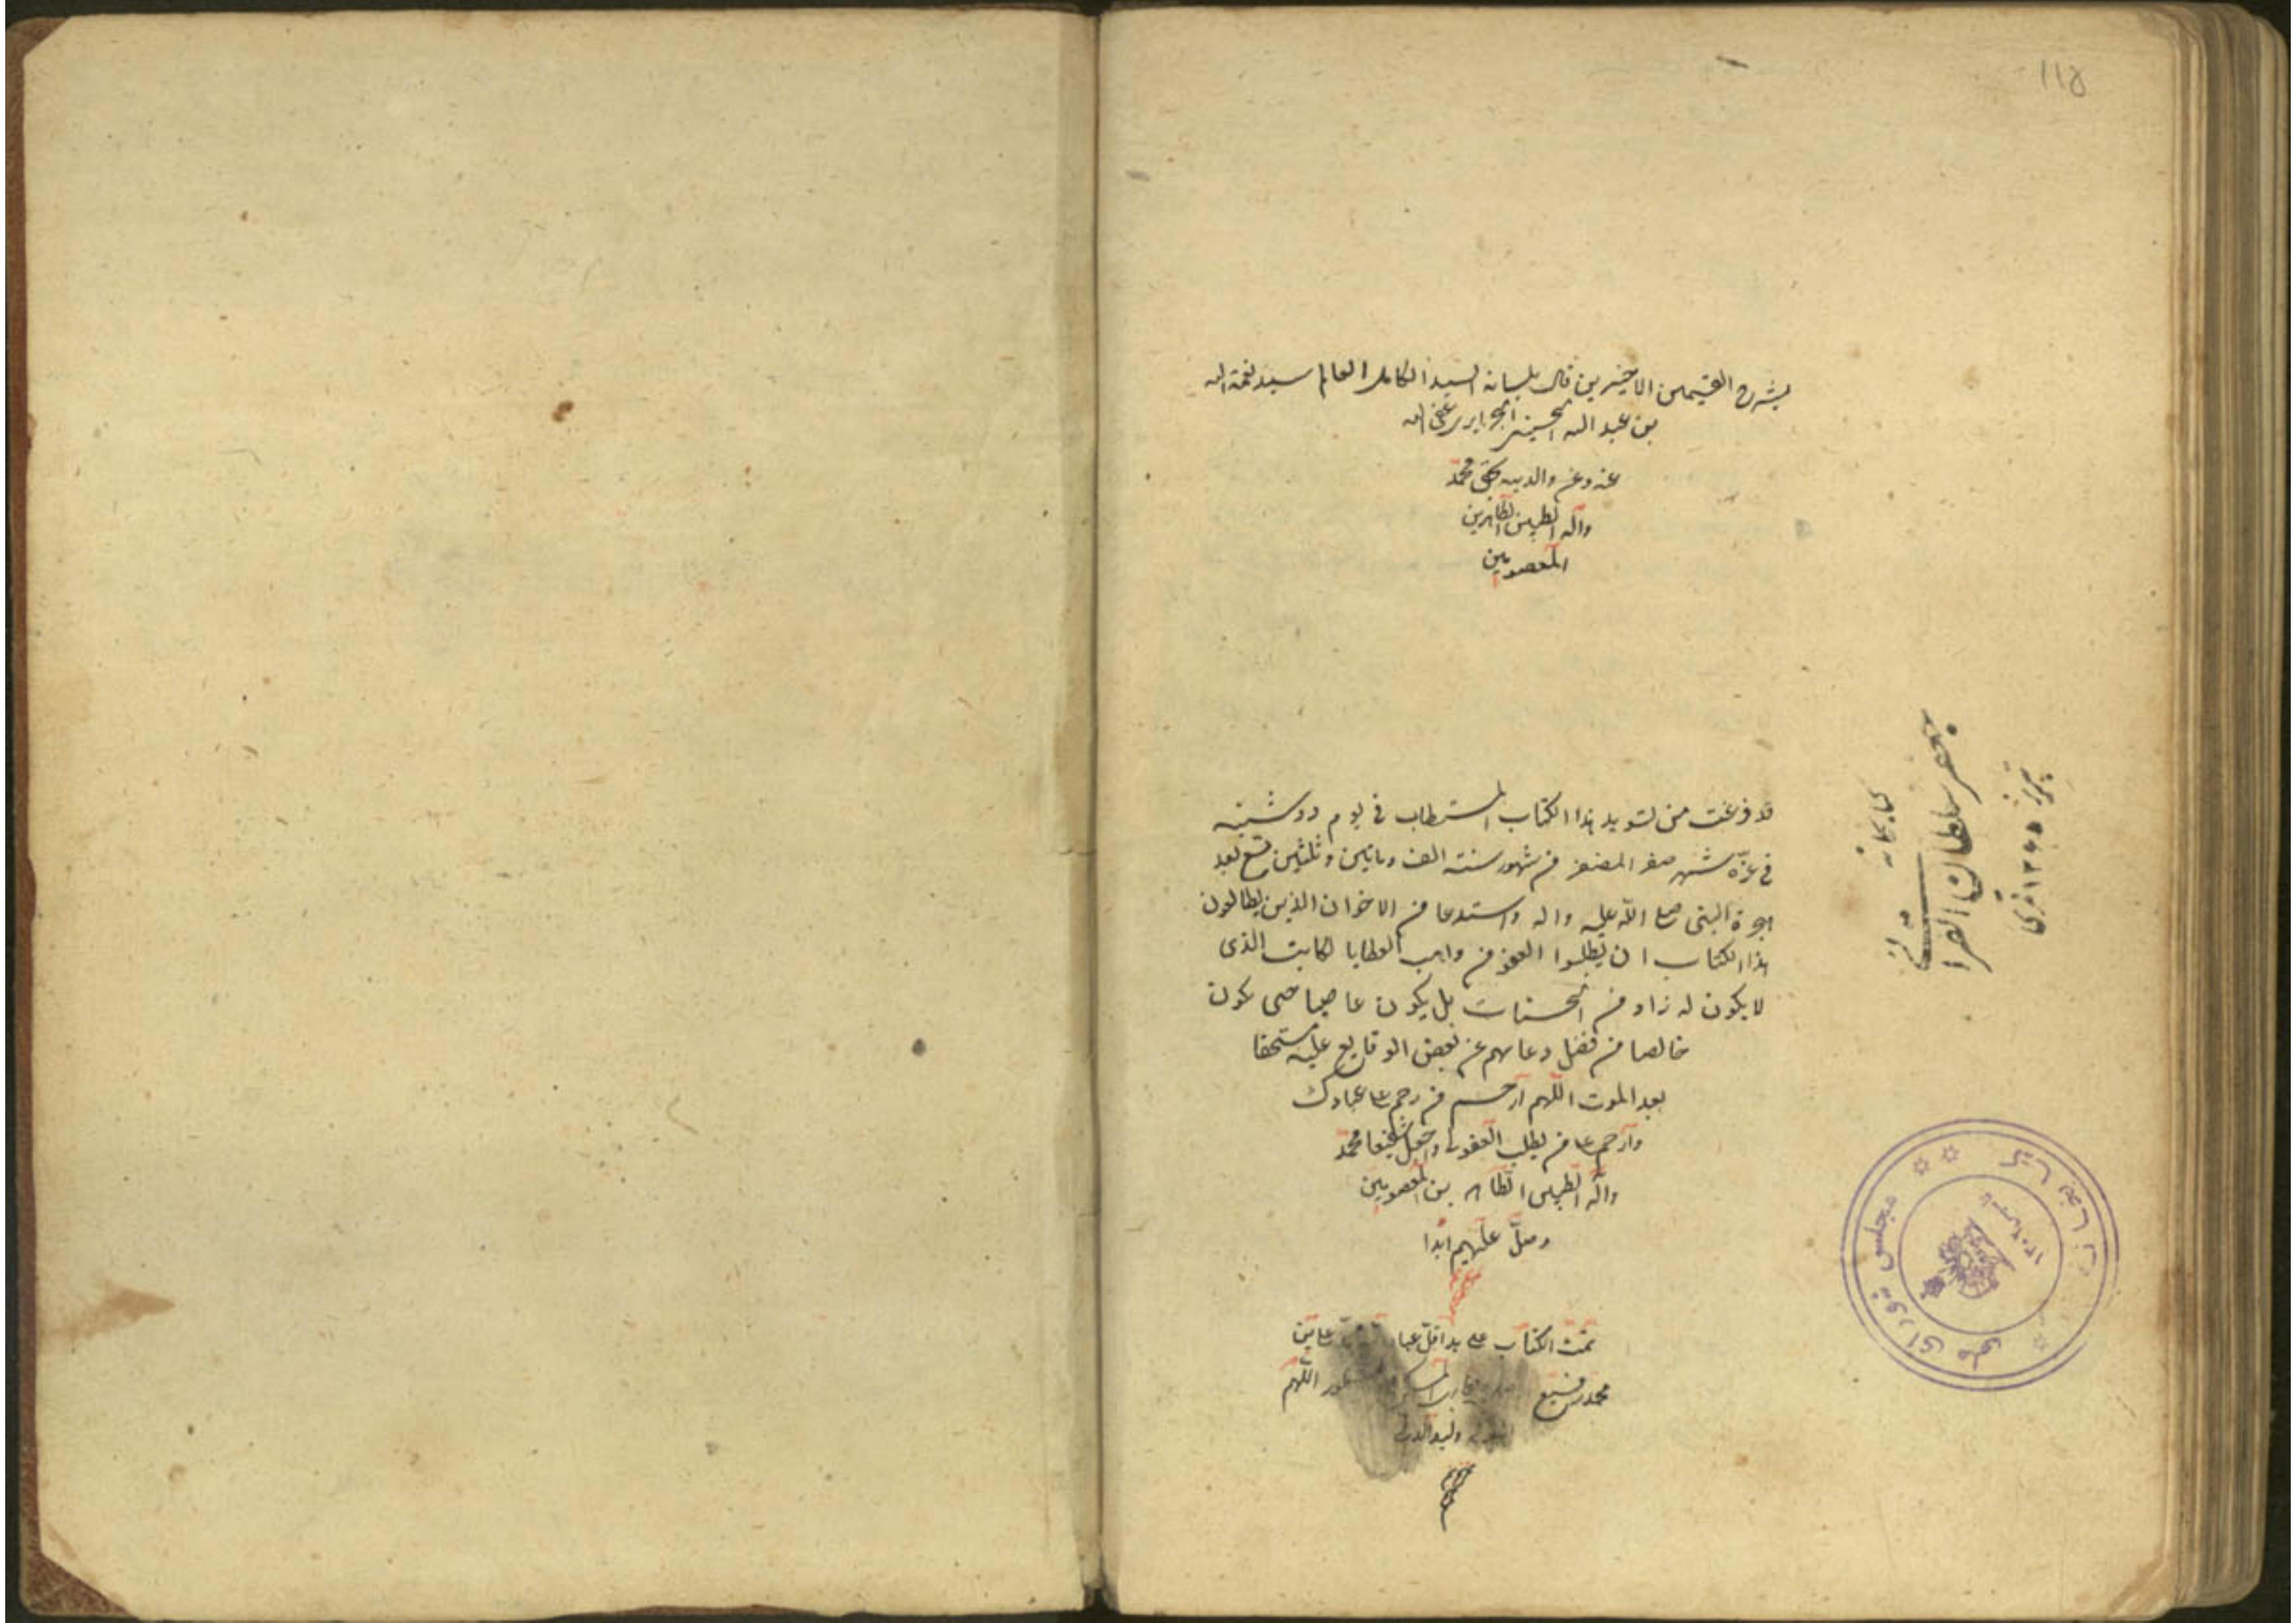 ١١٥
بشرح القسمين الاخيرين قال بلسانه السيد الكامل العالم سيد نعمة الله
بن عبد الله الحسيني الجزايري عفى الله
عنه وعن والديه بحق محمد
وآله الطيبين الطاهرين
المعصومين
قد فرغت من تسويد هذا الكتاب المستطاب في يوم دوشنبه
في غرّة شهر صفر المضفر من شهور سنة الف وماتين وثلثين تسع بعد
هجرة النبى صلى الله عليه واله واستدعا من الاخوان الذين يطالعون
هذا الكتاب ان يطلبوا العفو من واهب العطايا لكاتب الذى
لا يكون له زاد من الحسنات بل يكون عاصيا حتى يكون
خالصا من فضل دعاءهم عن بعض الوقايع عليه مستحقا
بعد الموت اللهم ارحم من رحم على عبادك
وارحم على من يطلب العفو واجعل شفيعنا محمد
وآله الطيبين الطاهرين المعصومين
وصلّ عليهم ابدا
تمت الكتاب على يد اقلّ عباد
محمد شفيع اللهم
ولوالدى
كتابخانه
جعفر سلطان القرائى
تبريز ١٣٤٥ قمرى
كتابخانه مجلس شوراى ملى
١٣٠٢